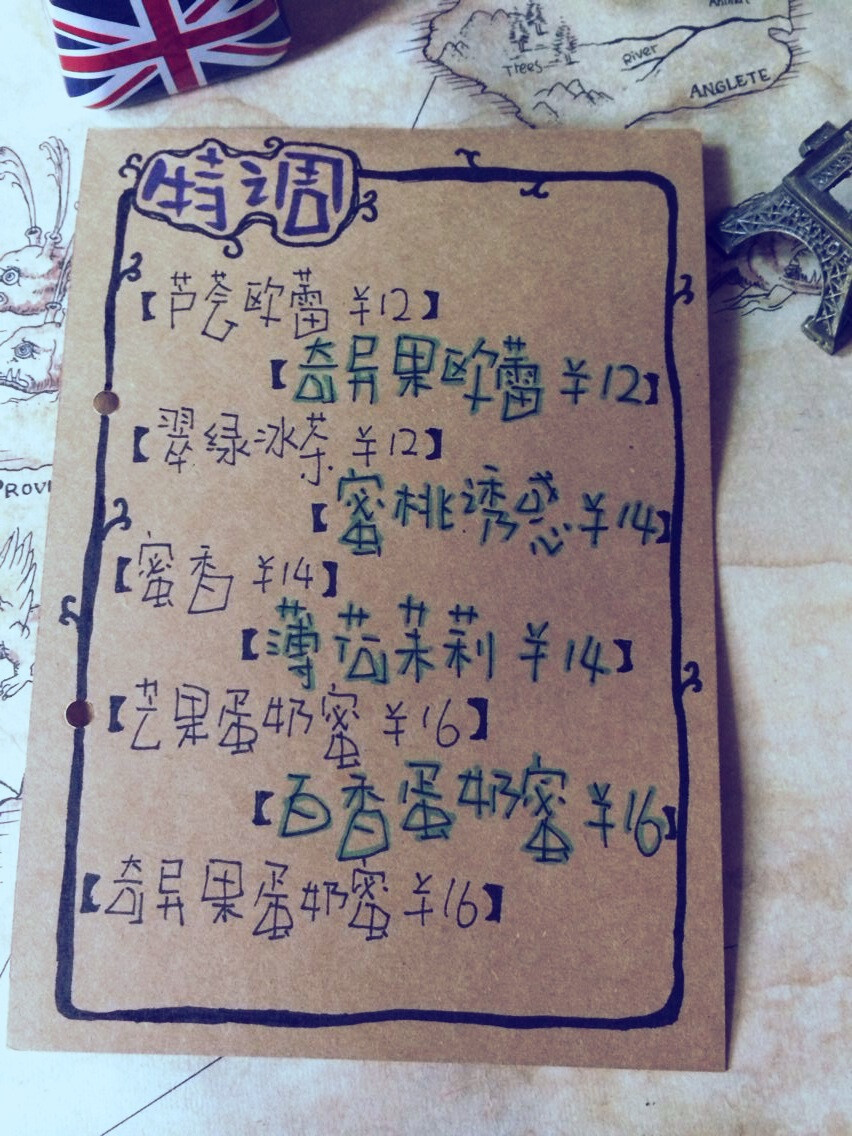 Animal
Trees
River
ANGLETE
特调
【芦荟欧蕾 ¥12】
【奇异果欧蕾 ¥12】
【翠绿冰茶 ¥12】
【蜜桃诱惑 ¥14】
【蜜香 ¥14】
【薄荷茉莉 ¥14】
【芒果蛋奶蜜 ¥16】
【百香蛋奶蜜 ¥16】
【奇异果蛋奶蜜 ¥16】